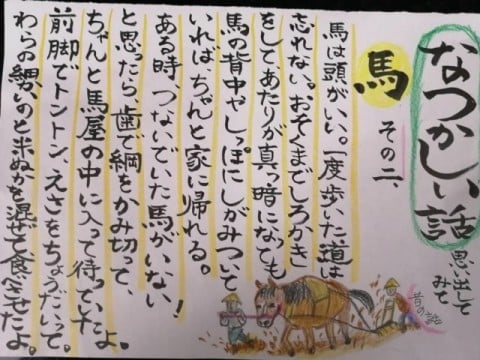 なつかしい話
思い出して
みて
馬
その二、
馬は頭がいい。一度歩いた道は
忘れない。おそくまでしろかき
をしてあたりが真っ暗になっても
馬の背中やしっぽにしがみついて
いれば、ちゃんと家に帰れる。
ある時、つないでいた馬がいない!
と思ったら歯で綱をかみ切って、
ちゃんと馬屋の中に入って待っていたよ。
前脚でトントン、えさをちょうだいって。
わらの細いのと米ぬかを混ぜて食べさせたよ。
昔の